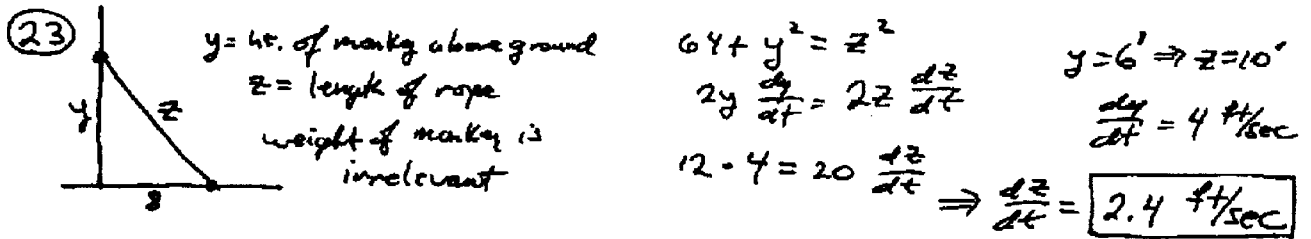 23
y = ht. of monkey above ground
z = length of rope
weight of monkey is
irrelevant
y
z
8
64 + y² = z²
2y dy/dt = 2z dz/dt
12 · 4 = 20 dz/dt
y = 6' ⇒ z = 10'
dy/dt = 4 ft/sec
⇒ dz/dt = 2.4 ft/sec